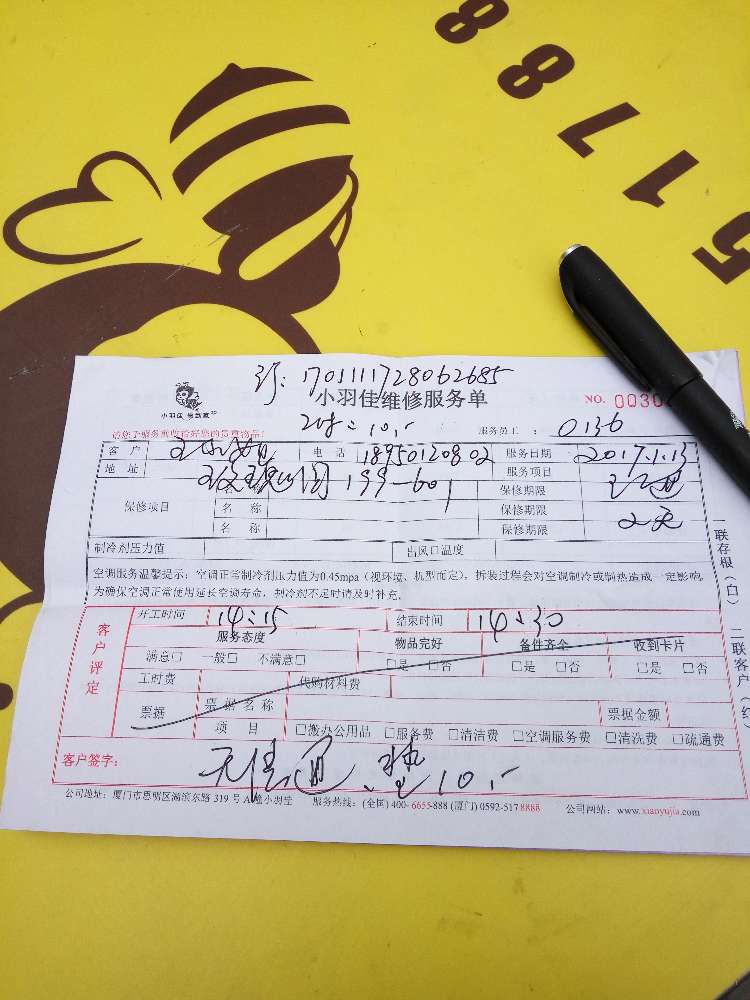 51788
1701111728062685
小羽佳维修服务单
NO. 0030
小羽佳
10,-
服务员工 : 0136
客 户
电 话 18950120802
服务日期 2017.1.13
地 址 199-601
服务项目
保修项目
名 称
保修期限
名 称
保修期限
名 称
保修期限 2天
制冷剂压力值
出风口温度
空调服务温馨提示:空调正常制冷剂压力值为0.45mpa(视环境、机型而定),拆装过程会对空调制冷或制热造成一定影响,
为确保空调正常使用延长空调寿命,制冷剂不足时请及时补充。
一联存根(白) 二联客户(红)
客户评定
开工时间 14:15
结束时间 14:30
服务态度
物品完好
备件齐全
收到卡片
满意□ 一般□ 不满意□
□是 □否
□是 □否
□是 □否
工时费
代购材料费
票据
票据名称
票据金额
项 目
□搬办公用品 □服务费 □清洁费 □空调服务费 □清洗费 □疏通费
客户签字: 10,-
公司地址:厦门市思明区湖滨东路 319 号 服务热线:(全国) 400-6655-888 (厦门) 0592-5178888 公司网站:www.xianyujia.com